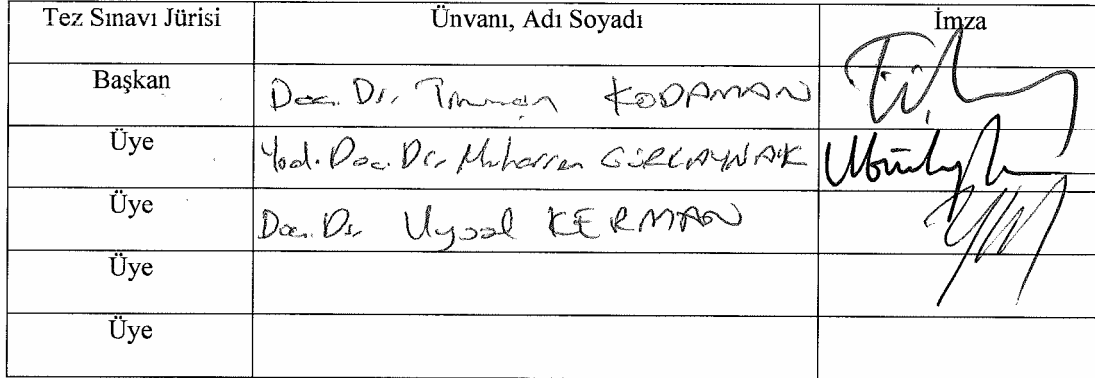 Tez Sınavı Jürisi Ünvanı, Adı Soyadı İmza
Başkan Doç. Dr. KODAMAN
Üye Yrd. Doç. Dr. Muharrem GÜRKAYNAK
Üye Doç. Dr. Uysal KERMAN
Üye
Üye